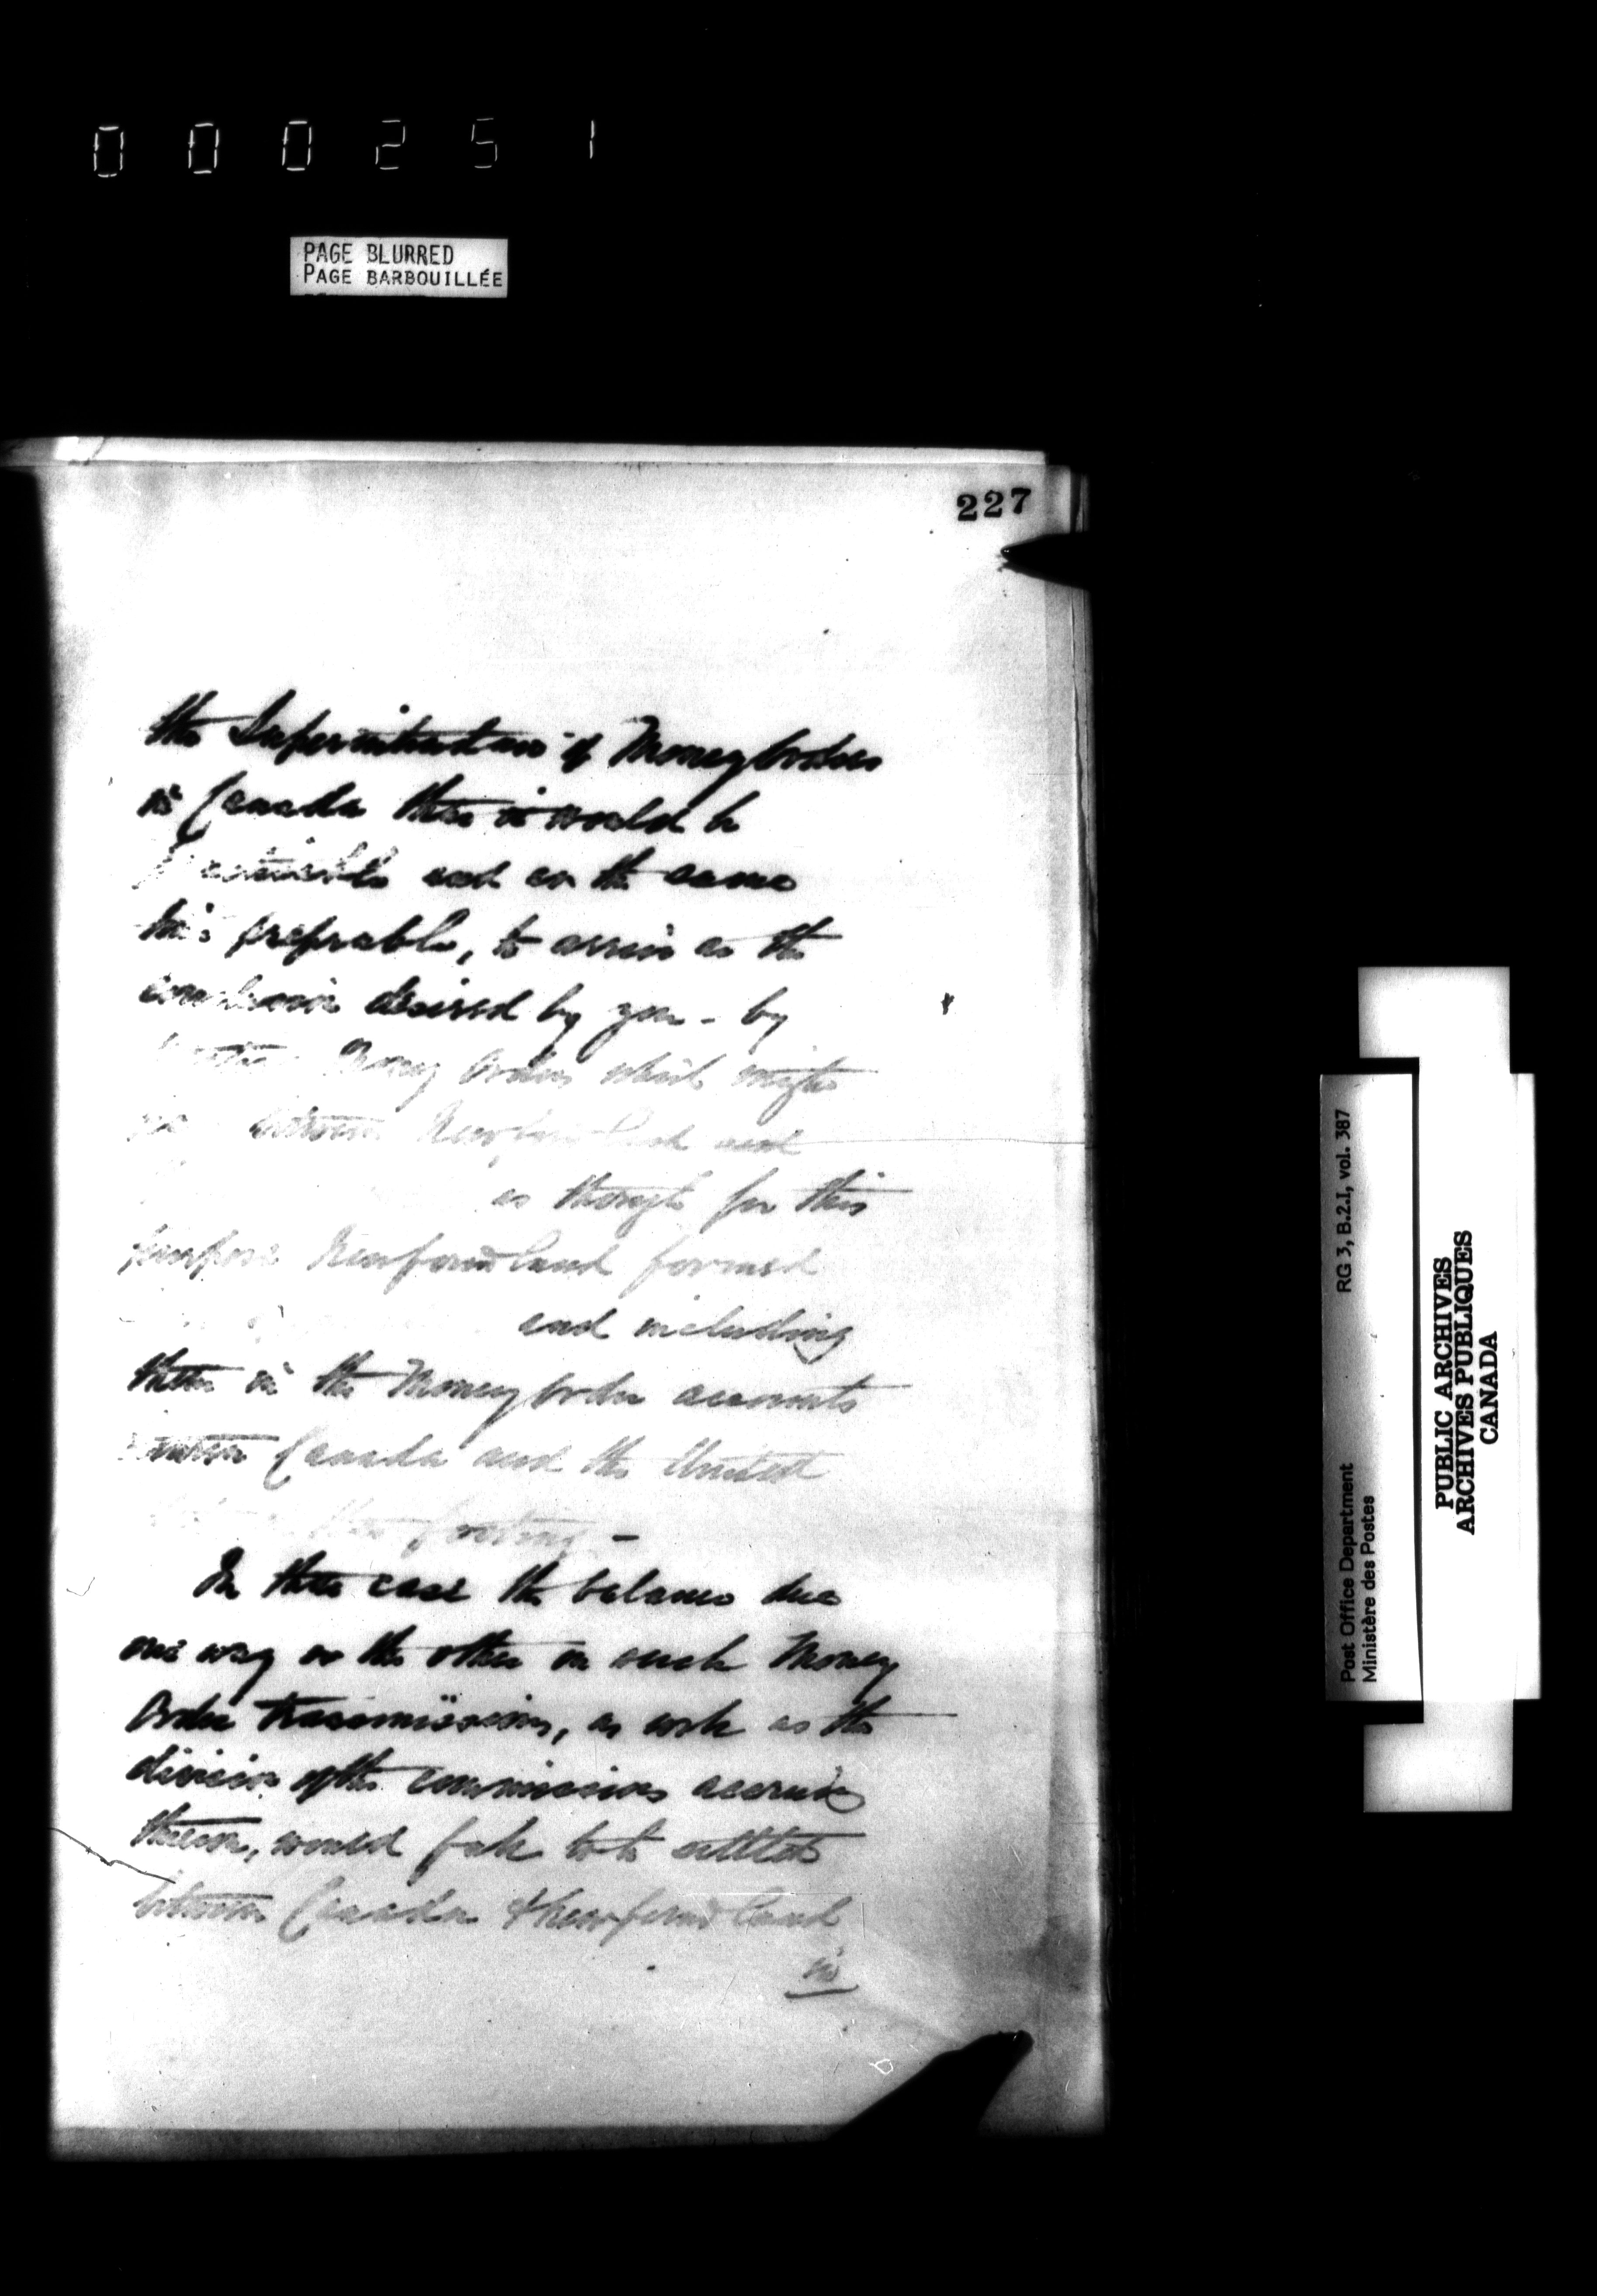 000251
PAGE BLURRED
PAGE BARBOUILLÉE
227
the Superintendent of Money Orders
in Canada that it would be
practicable and at the same
time preferable, to arrive at the
conclusion desired by you - by
Money Orders which might
between Newfoundland and
as though for this
purpose Newfoundland formed
and including
them in the Money Order accounts
between Canada and the United
footing -
In this case the balance due
one way or the other on such Money
Order transmissions, as well as the
division of the commissions accruing
thereon, would fall to be settled
between Canada & Newfoundland
in
RG 3, B.2.I, vol. 387
Post Office Department
Ministère des Postes
PUBLIC ARCHIVES
ARCHIVES PUBLIQUES
CANADA